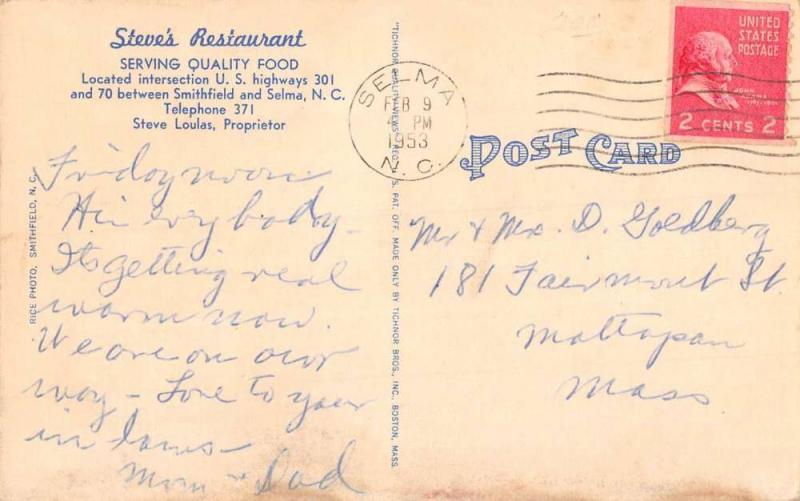 Steve's Restaurant
SERVING QUALITY FOOD
Located intersection U. S. highways 301
and 70 between Smithfield and Selma, N. C.
Telephone 371
Steve Loulas, Proprietor
Friday noon
Hi everybody -
Its getting real
warm now.
We are on our
way - Love to your
in laws -
Mom & Dad
RICE PHOTO, SMITHFIELD, N. C.
"TICHNOR QUALITY VIEWS," REG. U. S. PAT. OFF. MADE ONLY BY TICHNOR BROS., INC., BOSTON, MASS.
SELMA
FEB 9
4 PM
1953
N. C.
UNITED
STATES
POSTAGE
JOHN
ADAMS
2 CENTS 2
POST CARD
Mr & Mrs. D. Goldberg
181 Fairmount St.
Mattapan
Mass